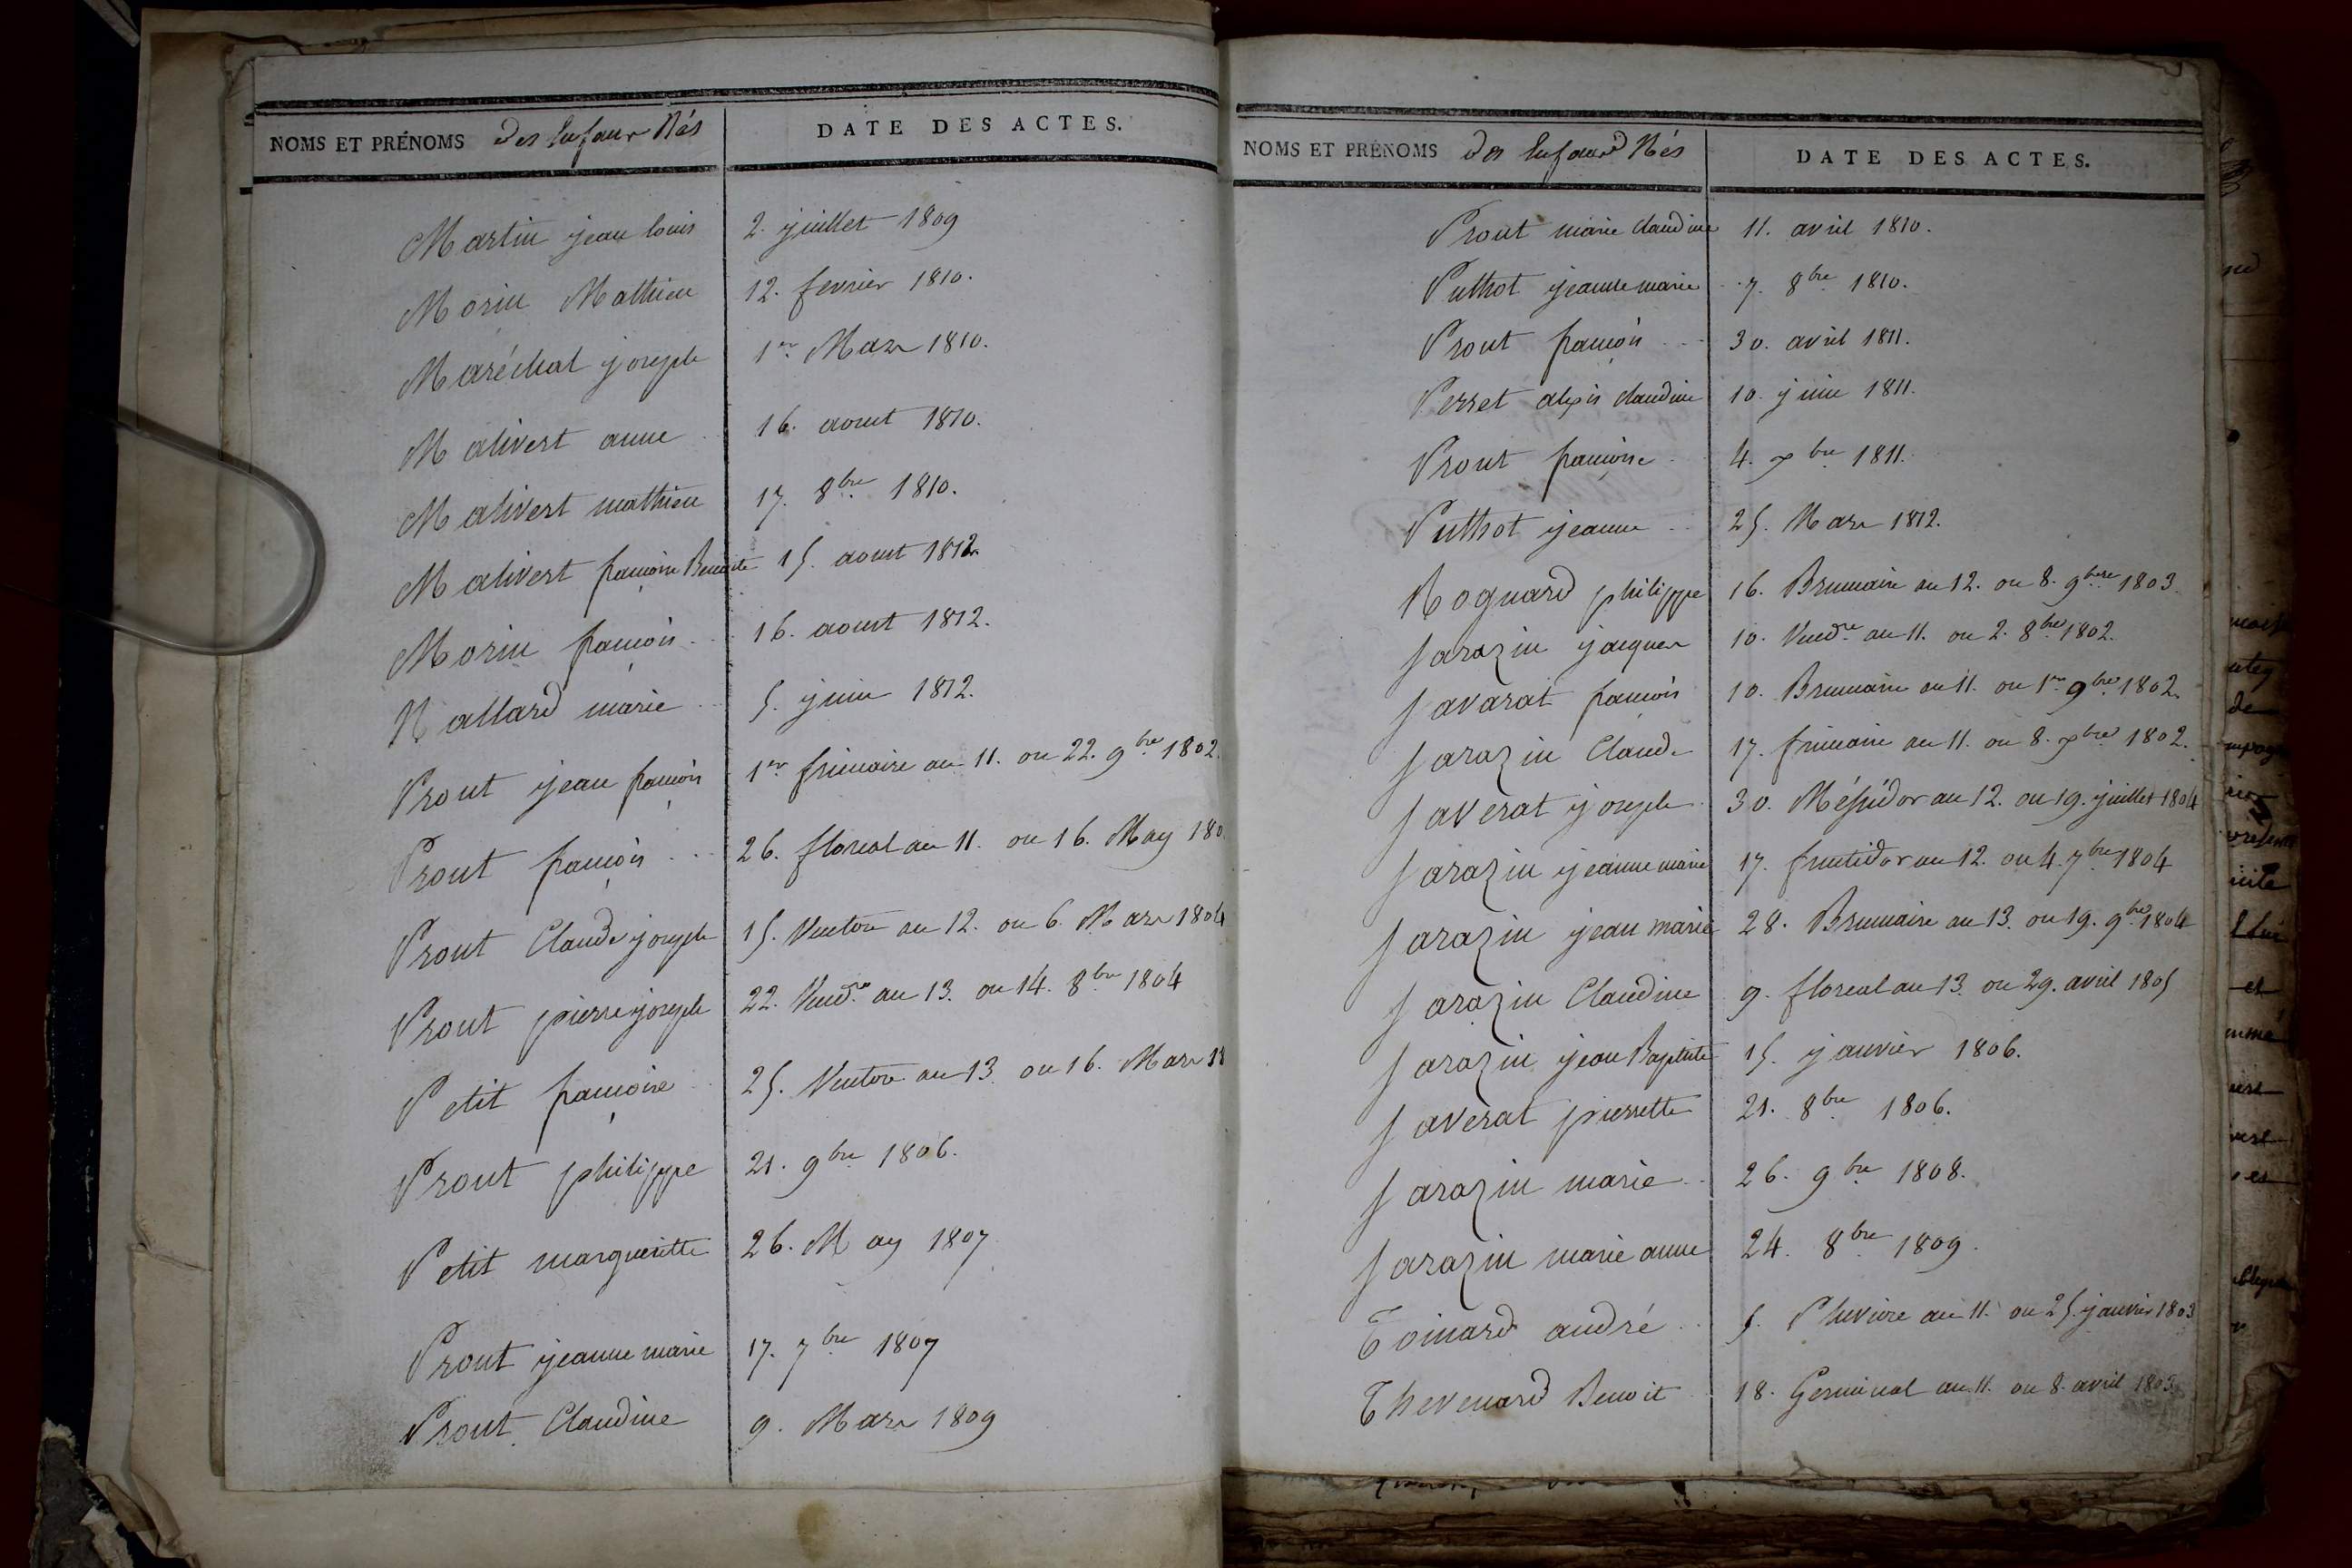 NOMS ET PRÉNOMS des Enfans Nés
DATE DES ACTES.
Martin jean louis 2. juillet 1809
Morin Mathieu 12. fevrier 1810.
Maréchal joseph 1er Mars 1810.
Malivert anne 16. aoust 1810.
Malivert mathieu 17. 8bre 1810.
Malivert françoise Benoite 15. aoust 1812.
Morin françois 16. aoust 1812.
Nallard marie 5. juin 1812.
Prout jean françois 1er frimaire an 11. ou 22. 9bre 1802.
Prout françois 26. floreal an 11 ou 16. May 180
Prout Claude joseph 15. Ventose an 12. ou 6. Mars 1804
Prout pierre joseph 22. Vend.re an 13. ou 14. 8bre 1804
Petit françoise 25. Ventose an 13. ou 16. Mars 18
Prout philippe 21. 9bre 1806.
Petit margueritte 26. May 1807
Prout jeanne marie 17. 7bre 1807
Prout Claudine 9. Mars 1809
NOMS ET PRÉNOMS des Enfans Nés
DATE DES ACTES.
Prout marie claudine 11. avril 1810.
Puthot jeanne marie 7. 8bre 1810.
Prout françois 30. avril 1811.
Perret alexis claudine 10. juin 1811.
Prout françoise 4. xbre 1811.
Puthot jeanne 25. Mars 1812.
Roguard philippe 16. Brumaire an 12. ou 8. 9bre 1803.
Sarazin jacques 10. Vend.re an 11. ou 2. 8bre 1802.
Savarat françois 10. Brumaire an 11. ou 1er 9bre 1802.
Sarazin Claude 17. frimaire an 11. ou 8. xbre 1802.
Saverat joseph 30. Méssidor an 12. ou 19. juillet 1804
Sarazin jeanne marie 17. fructidor an 12. ou 4. 7bre 1804
Sarazin jean marie 28. Brumaire an 13. ou 19. 9bre 1804
Sarazin Claudine 9. floreal an 13. ou 29. avril 1805
Sarazin jean Baptiste 15. janvier 1806.
Saverat pierrette 21. 8bre 1806.
Sarazin marie 26. 9bre 1808.
Sarazin marie anne 24. 8bre 1809.
Toinard andré 5. Pluviose an 11. ou 25. janvier 1803
Thevenard Benoit 18. Germinal an 11. ou 8. avril 1803.